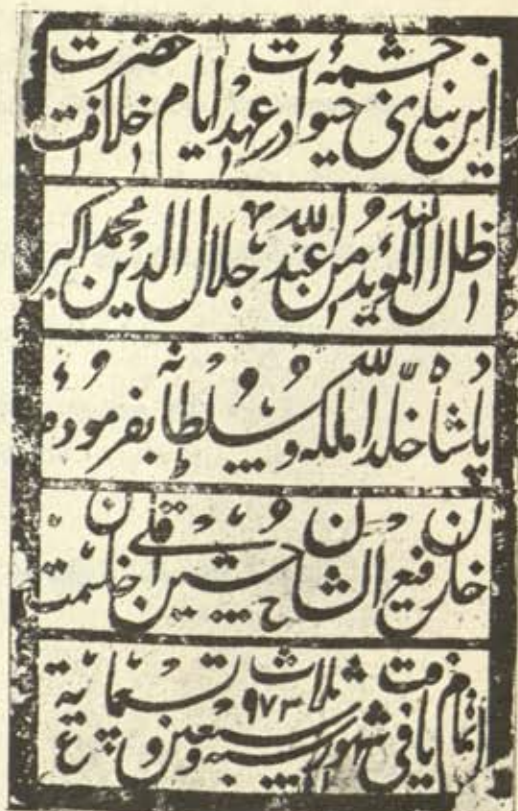 این بنای چشمه حیوات در عهد ایام خلافت حضرت
ظل الله المؤید من عند الله جلال الدین محمد اکبر
پادشاه خلد الله ملکه و سلطانه بفرموده
خان رفیع الشان حسین قلی خان سمت
اتمام یافت فی شهور سنه ثلاث و سبعین و تسعمایة ۹۷۳